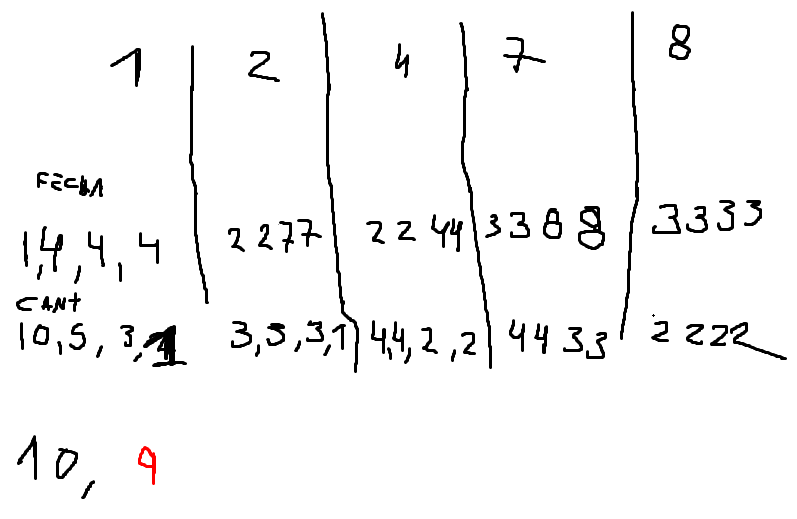 1 2 4 7 8
FECHA
1,4,4,4 2277 2244 3388 3333
CANT
10,5,3,1 3,3,3,1 4,4,2,2 4433 2222
10, 9